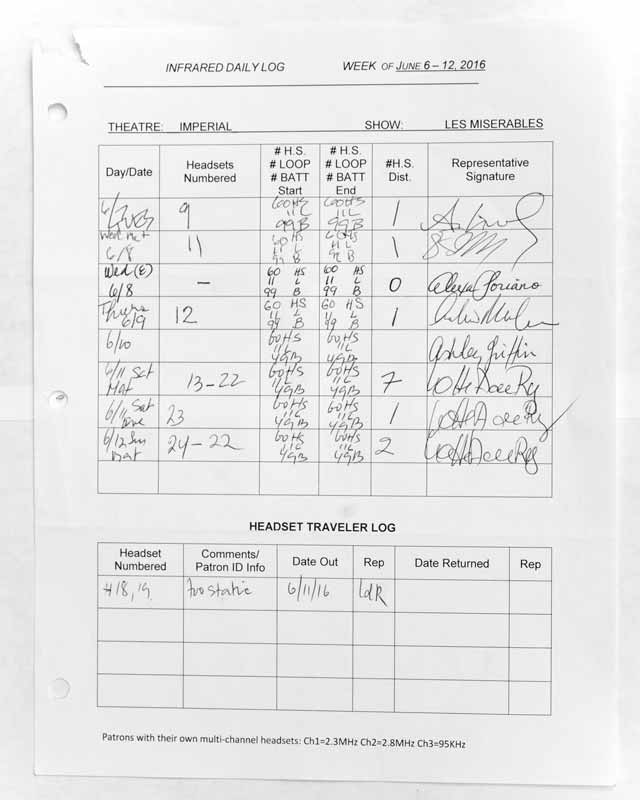 INFRARED DAILY LOG WEEK OF JUNE 6 – 12, 2016
THEATRE: IMPERIAL SHOW: LES MISERABLES
Day/Date Headsets Numbered # H.S. # LOOP # BATT Start # H.S. # LOOP # BATT End #H.S. Dist. Representative Signature
6/7 Tues 9 60HS 11L 99B 60HS 11L 99B 1
Wed Mat 6/8 11 60 HS 11 L 99 B 60 HS 11 L 99 B 1
Wed (E) 6/8 – 60 HS 11 L 99 B 60 HS 11 L 99 B 0 Alexa Soriano
Thurs 6/9 12 60 HS 11 L 99 B 60 HS 11 L 99 B 1
6/10 60HS 11L 49B 60HS 11L 49B Ashley Griffin
6/11 Sat Mat 13–22 60HS 11L 49B 60HS 11L 49B 7
6/11 Sat Eve 23 60HS 11L 49B 60HS 11L 49B 1
6/12 Sun Mat 24–22 60HS 11L 49B 60HS 11L 49B 2
HEADSET TRAVELER LOG
Headset Numbered Comments/ Patron ID Info Date Out Rep Date Returned Rep
#18, 19 too static 6/11/16 LdR
Patrons with their own multi-channel headsets: Ch1=2.3MHz Ch2=2.8MHz Ch3=95KHz